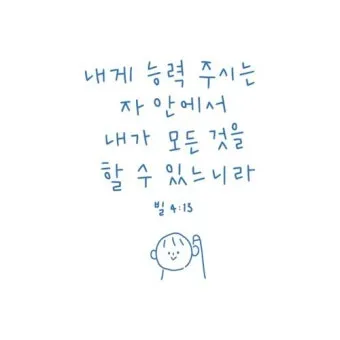 내게 능력 주시는
자 안에서
내가 모든 것을
할 수 있느니라
빌 4:13